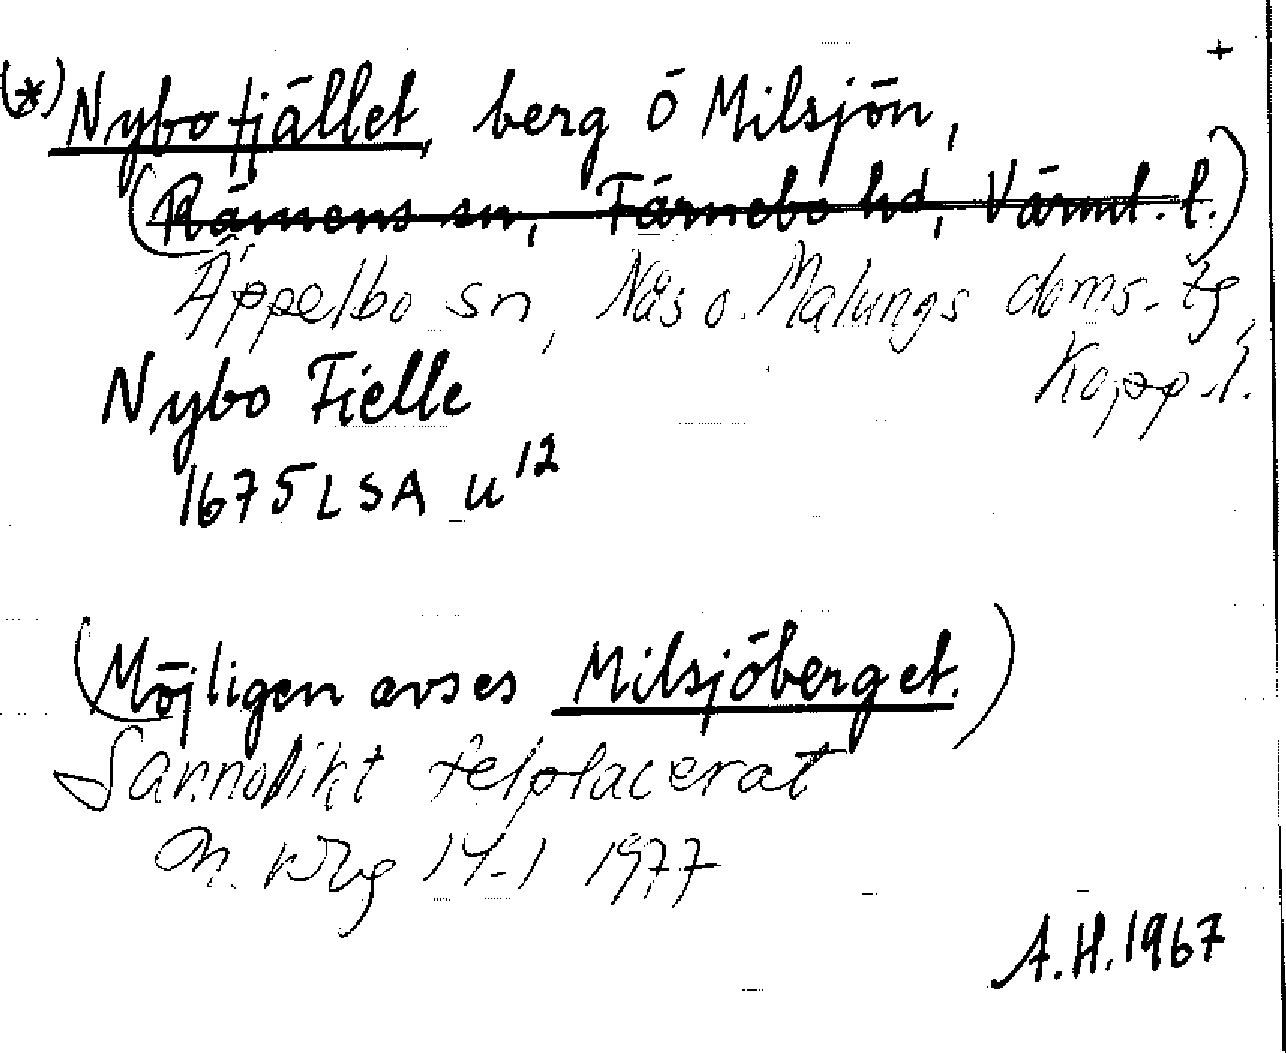 +
(*) Nybofjället, berg Ö Milsjön,
(Rämens sn, Färnebo hd, Värml. l.)
Äppelbo sn, Nås o. Malungs doms. tg
Kopp. l.
Nybo Fielle
1675 LSA u12
(Möjligen avses Milsjöberget.)
Sannolikt felplacerat
14-1 1977
A.H. 1967